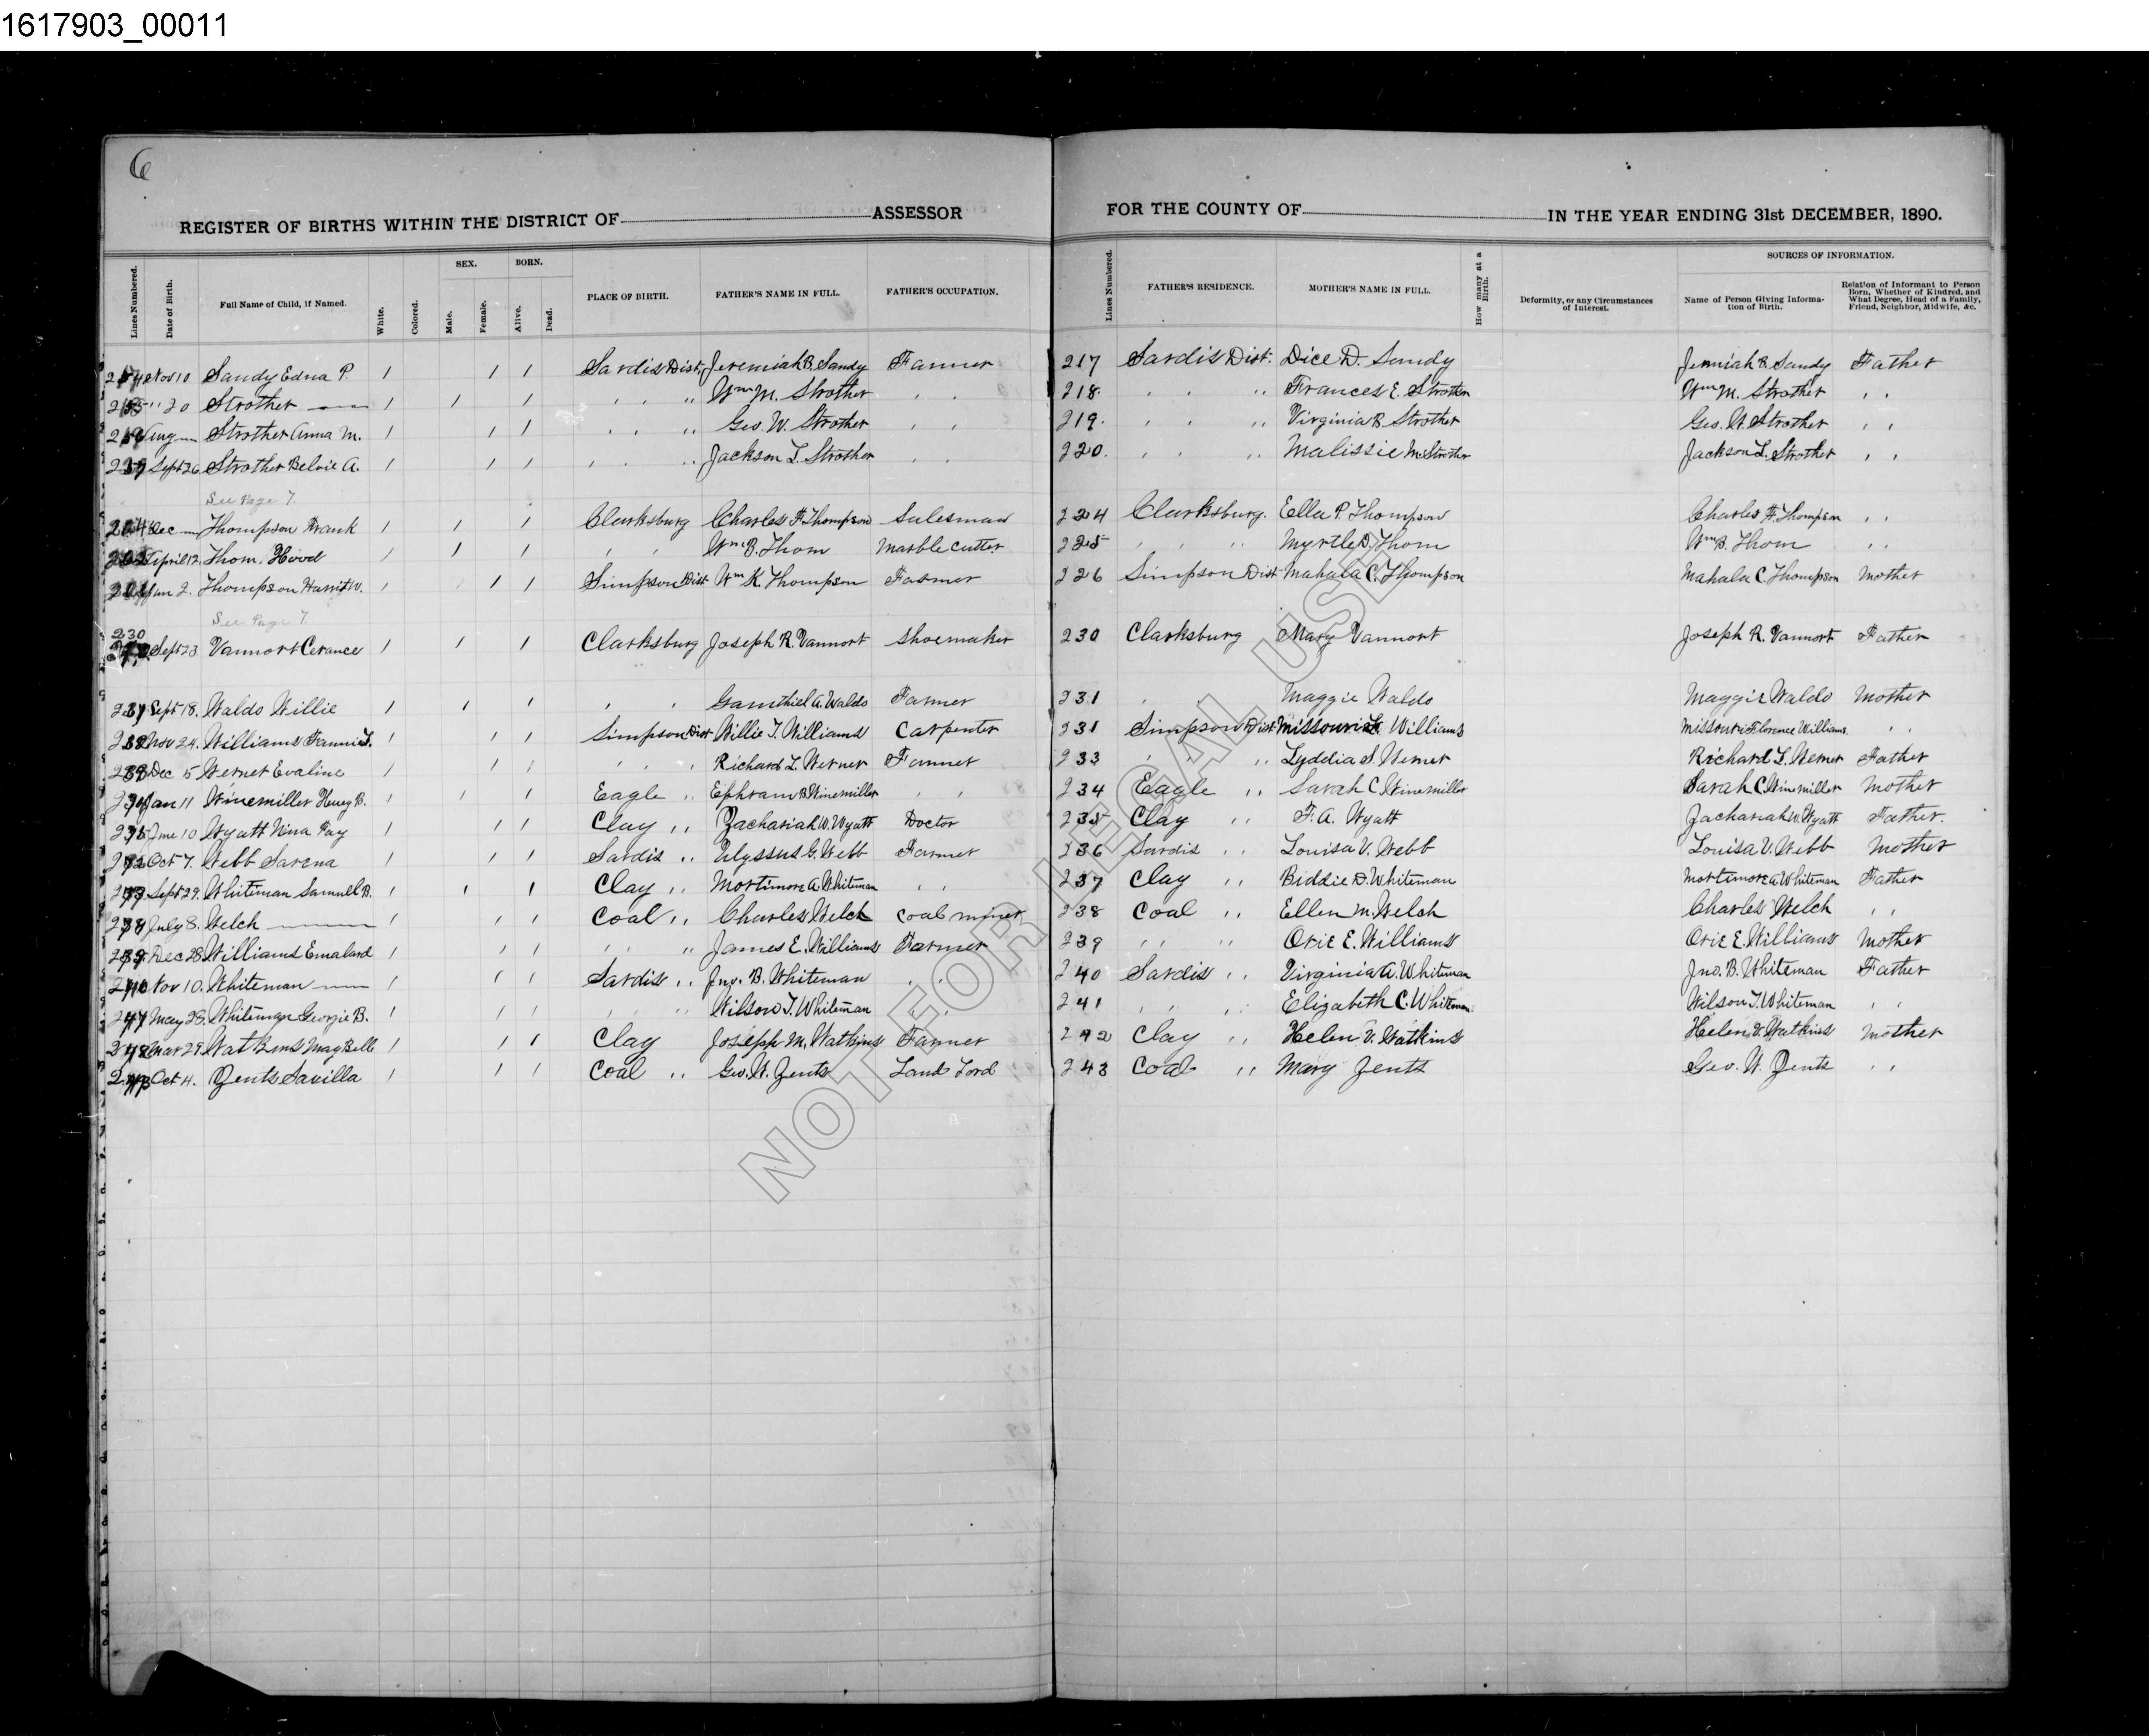 1617903_00011
6
REGISTER OF BIRTHS WITHIN THE DISTRICT OF ASSESSOR FOR THE COUNTY OF IN THE YEAR ENDING 31st DECEMBER, 1890.
Lines Numbered. Date of Birth. Full Name of Child, if Named. White. Colored. SEX. Male. Female. BORN. Alive. Dead. PLACE OF BIRTH. FATHER'S NAME IN FULL. FATHER'S OCCUPATION. Lines Numbered. FATHER'S RESIDENCE. MOTHER'S NAME IN FULL. How many at a Birth. Deformity, or any Circumstances of Interest. SOURCES OF INFORMATION. Name of Person Giving Information of Birth. Relation of Informant to Person Born, Whether of Kindred, and What Degree, Head of a Family, Friend, Neighbor, Midwife, &c.
Nov 10 Sandy Edna P. 1 1 1 Sardis Dist. Jeremiah B. Sandy Farmer 217 Sardis Dist. Dice D. Sandy Jermiah B. Sandy Father
" 20 Strother 1 1 1 " " " Wm M. Strother " " 218 " " " Frances E. Strother Wm M. Strother " "
Aug Strother Anna M. 1 1 1 " " " Geo. W. Strother " " 219 " " " Virginia B Strother Geo. W. Strother " "
Sept 26 Strother Belvie A. 1 1 1 " " " Jackson L. Strother " " 220 " " " Malissie M. Strother Jackson L. Strother " "
See Page 7.
Dec Thompson Frank 1 1 1 Clarksburg Charles F. Thompson Salesman 224 Clarksburg. Ella P. Thompson Charles F. Thompson " "
April 12 Thom. Hood 1 1 1 " " Wm B. Thom Marble Cutter 225 " " " Myrtle D. Thom Wm B. Thom " "
Jan 2. Thompson Harriet W. 1 1 1 Simpson Dist Wm K. Thompson Farmer 226 Simpson Dist Mahala C. Thompson Mahala C. Thompson Mother
See Page 7.
230 Sept 23 Vannort Cerance 1 1 1 Clarksburg Joseph R. Vannort Shoemaker 230 Clarksburg Mary Vannort Joseph R. Vannort Father
Sept 18. Waldo Willie 1 1 1 " " Gamthiel A. Waldo Farmer 231 " Maggie Waldo Maggie Waldo Mother
Nov 24. Williams Fannie L. 1 1 1 Simpson Dist Willie T. Williams Carpenter 231 Simpson Dist Missouri Williams Missouri Florence Williams " "
Dec 5 Werner Evaline 1 1 1 " " " Richard L. Werner Farmer 233 " " " Lyddia S. Werner Richard L. Werner Father
Jan 11 Winemiller Henry B. 1 1 1 Eagle " Ephram B Winemiller " " 234 Eagle " Sarah C Winemiller Sarah C. Winemiller Mother
June 10 Wyatt Nina Fay 1 1 1 Clay " Zachariah W. Wyatt Doctor 235 Clay " F. A. Wyatt Zachariah W. Wyatt Father.
Oct 7. Webb Sarena 1 1 1 Sardis " Ulyssus G. Webb Farmer 236 Sardis " Louisa V. Webb Louisa V. Webb Mother
Sept 29. Whiteman Samuel B. 1 1 1 Clay " Mortimore A. Whiteman " " 237 Clay " Biddie D. Whiteman Mortimore A Whiteman Father
July 8. Welch 1 1 1 Coal " Charles Welch Coal miner 238 Coal " Ellen M. Welch Charles Welch " "
Dec 28 Williams Emalard 1 1 1 " " " James E. Williams Farmer 239 " " " Orie E. Williams Orie E. Williams Mother
Nov 10. Whiteman 1 1 1 Sardis " Jno. B. Whiteman " " 240 Sardis " Virginia A. Whiteman Jno. B. Whiteman Father
May 28. Whiteman Georgie B. 1 1 1 " " " Wilson T. Whiteman " 241 " " " Elizabeth C. Whiteman Wilson T. Whiteman " "
Mar 29 Watkins May Bell 1 1 1 Clay Joseph M. Watkins Farmer 242 Clay " Helen V. Watkins Helen V. Watkins Mother
Oct 4. Zents Savilla 1 1 1 Coal " Geo. W. Zents Land Lord 243 Coal " Mary Zents Geo. W. Zents " "
NOT FOR LEGAL USE